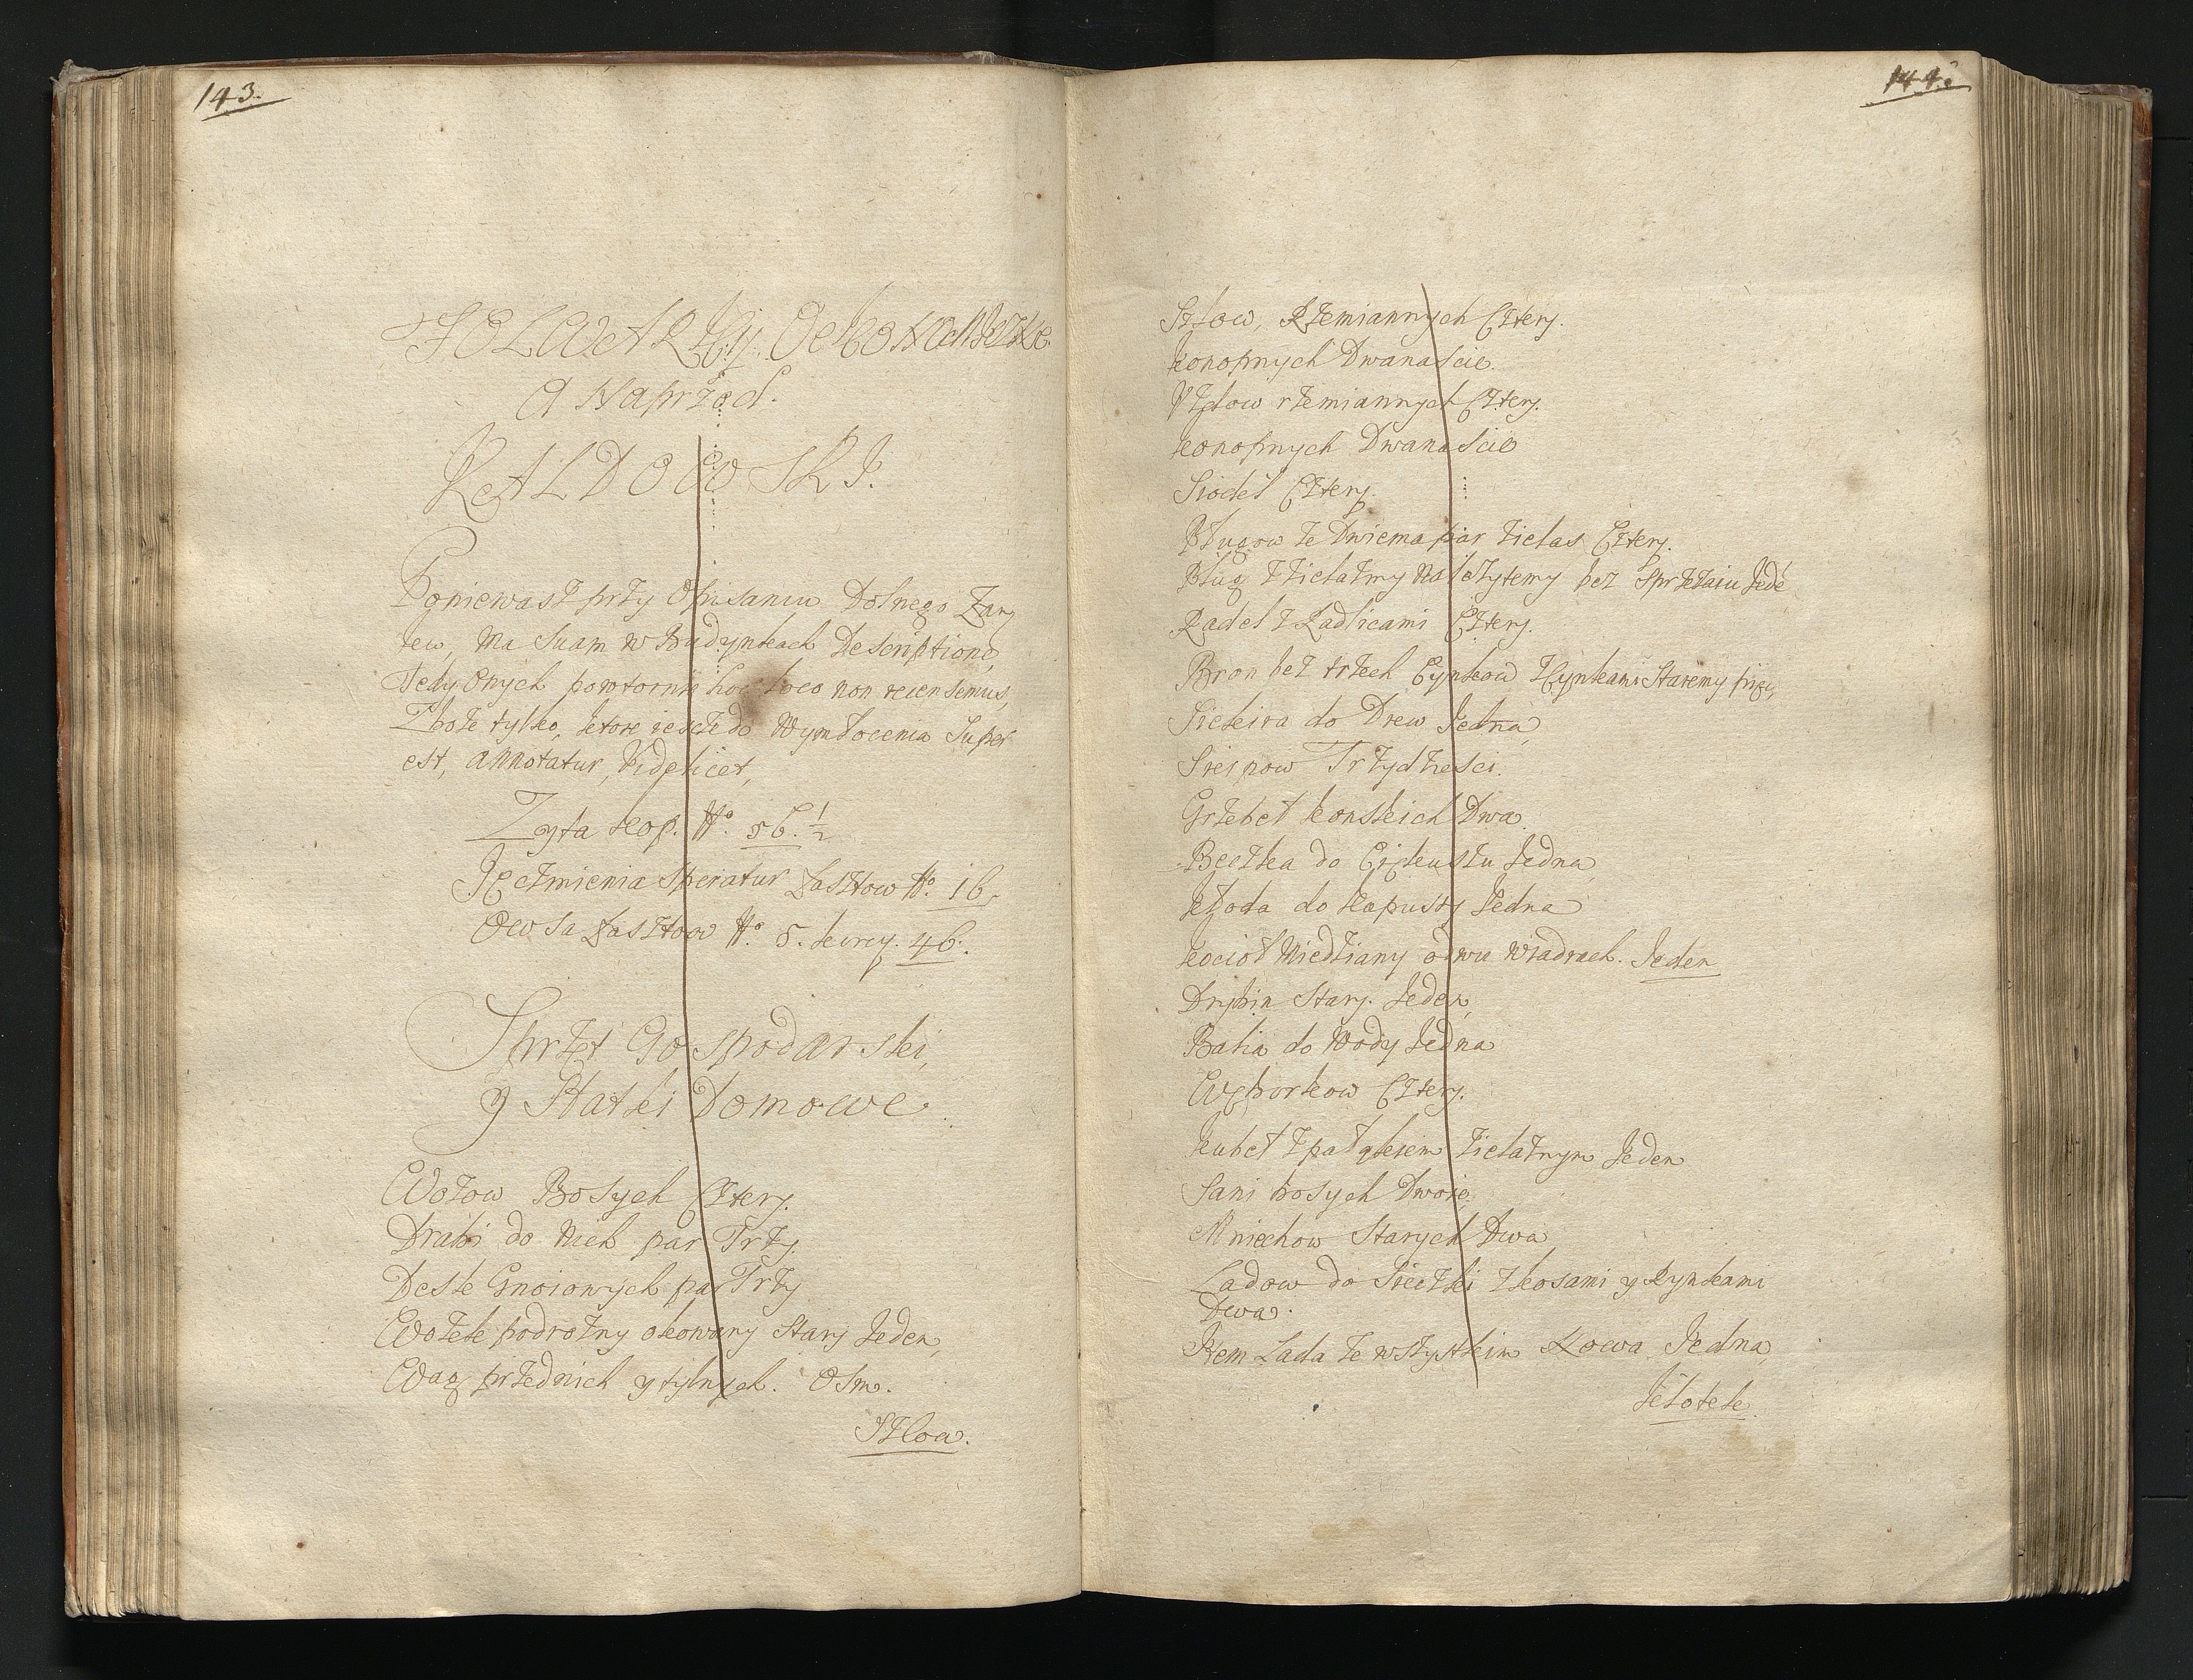 143.
FOLWARKY Oekonomiczne.
A Naprzod.
KAŁDOWSKI.
Poniewasz przy Opisaniu Dolnego Zam
ku, Ma Suam w Budynkach Descriptione,
Tedy Onych powtornie hoc loco non recensemus,
Zboże tylko, ktore ieszcze do Wymłocenia Super
est, Annotatur, Videlicet,
Zyta kop. No. 56. 1/2
Jęczmienia Speratur Łasztow No. 16.
Owsa Łasztow No. 5. korcy. 46.
Sprzęt Gospodarski,
y Statki Domowe.
Wozow Bosych Cztery.
Drabi do Nich par Trzy
Desk Gnoiowych par Trzy
Wozek podrożny okowany Stary Jeden,
Wag przednich y tylnych. Osm.
Szlow.
144.
Szlow, Rzemiannych Cztery.
konopnych Dwanascie.
Uzdow rzemiannych Cztery.
konopnych Dwanascie
Siodeł Cztery.
Pługow ze Dwiema par Żielas Cztery.
Pług z żielazmy należytemy bez Sprzężaiu Jedē
Radeł z Radlicami Cztery.
Bron bez trzech Cynkow z Cynkami Staremy pięc,
Siekira do Drew Jedna,
Sierpow Trzydzieści.
Grzebeł konskich Dwa.
Beczka do Ćwikwasu Jedna,
kłoda do kapusty Jedna
kocioł Miedziany o dwu Wiadrach. Jeden
Drybin Stary. Jeden,
Balia do Wody Jedna
Węborkow Cztery.
kubeł z pałąkiem żielaznym Jeden
Sani bosych Dwoie,
Mniechow Starych Dwa
Ładow do Sieczki z kosami y Rynkami
Dwa.
Item Łada ze wszystkim Nowa Jedna,